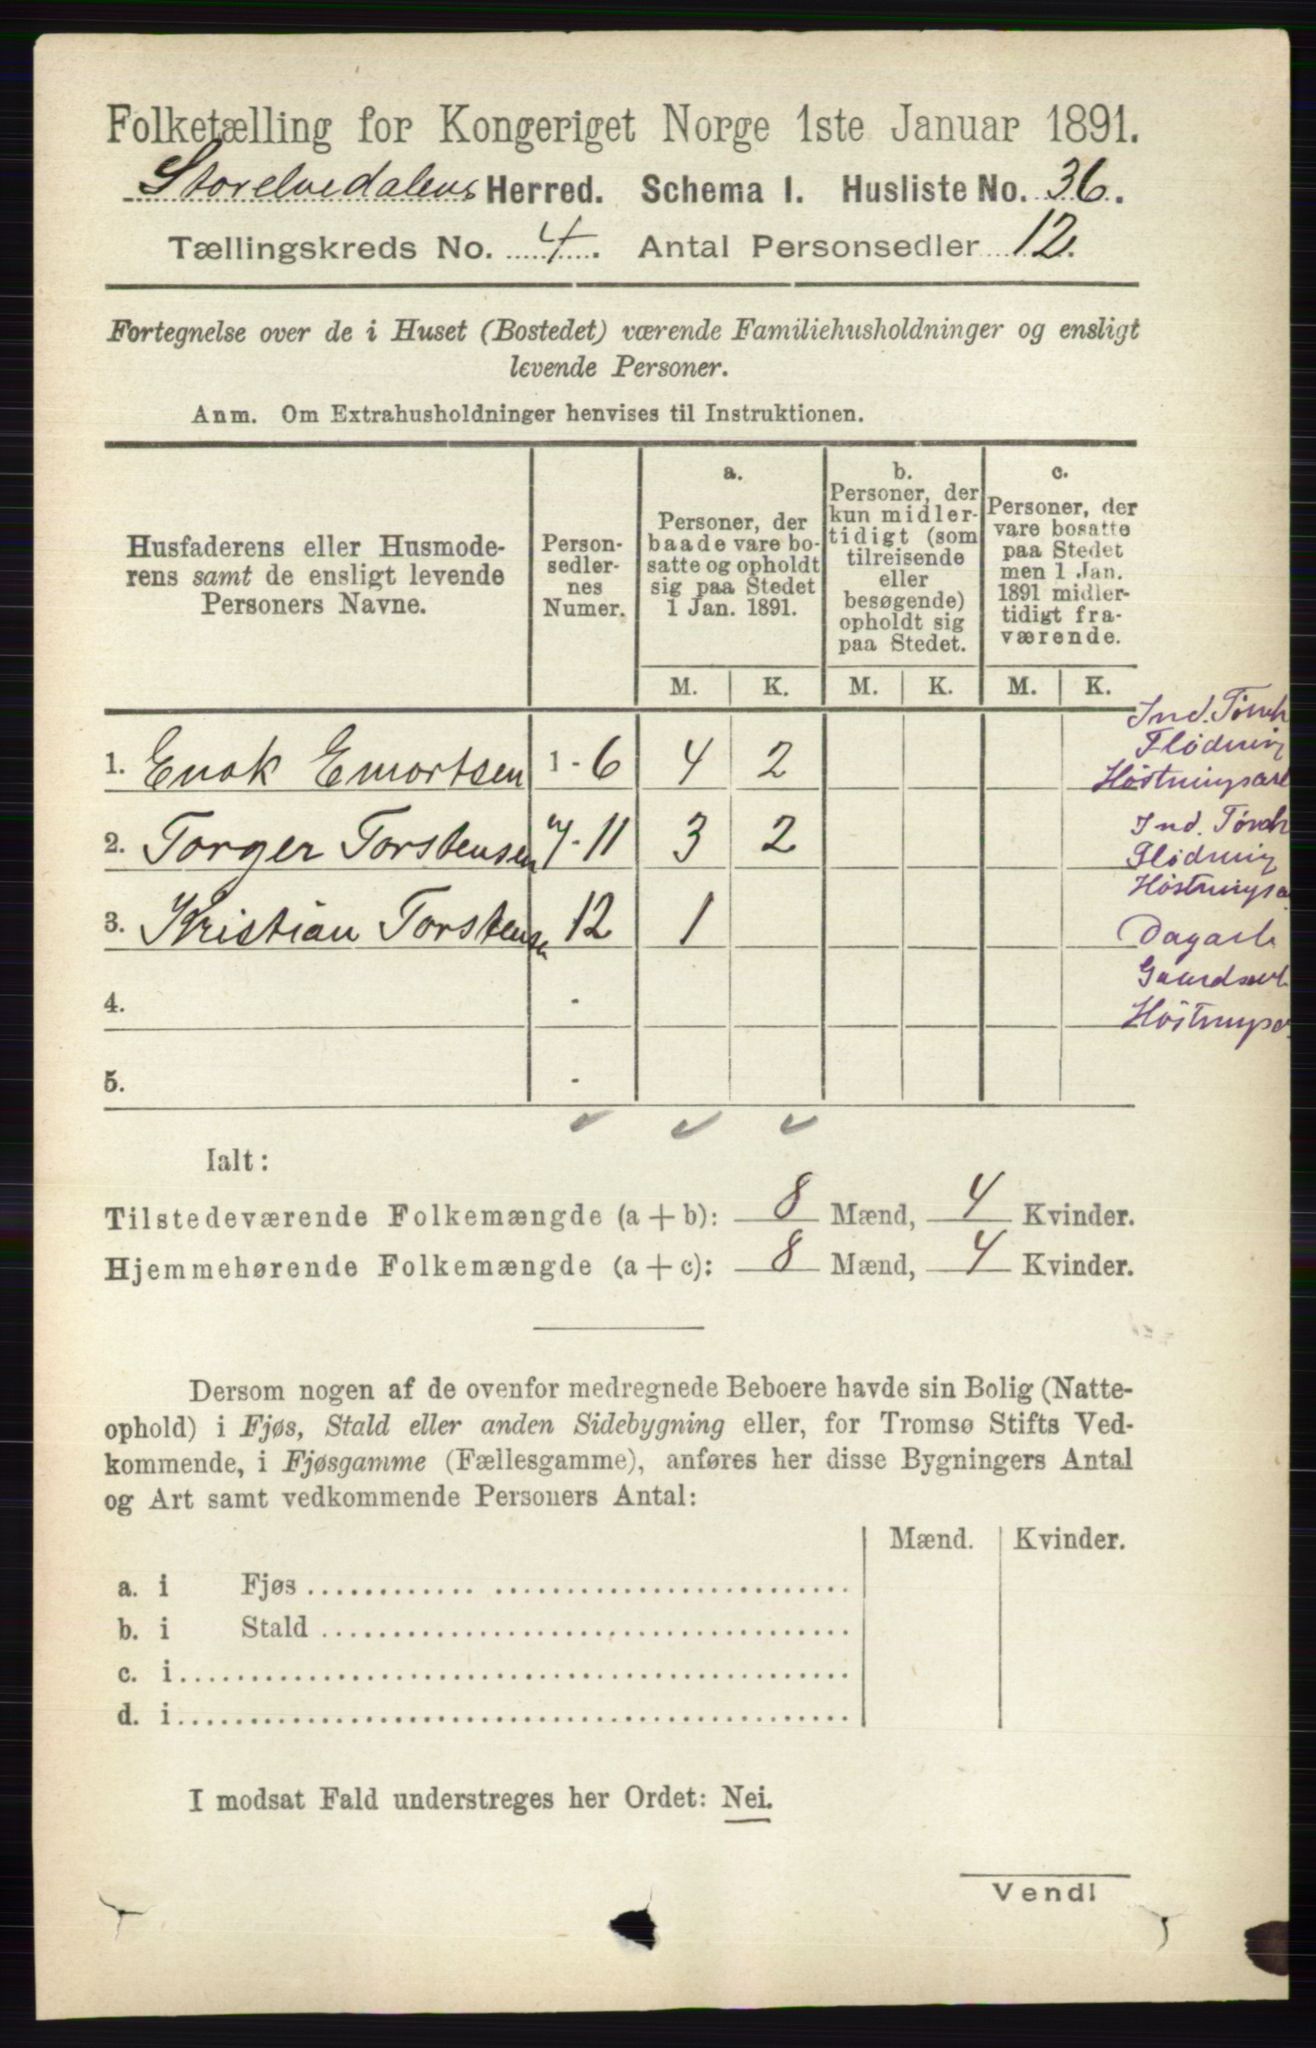 Folketælling for Kongeriget Norge 1ste Januar 1891.
Storelvedalens Herred. Schema I. Husliste No. 36.
Tællingskreds No. 4. Antal Personsedler 12.
Fortegnelse over de i Huset (Bostedet) værende Familiehusholdninger og ensligt
levende Personer.
Anm. Om Extrahusholdninger henvises til Instruktionen.
Husfaderens eller Husmode-
rens samt de ensligt levende
Personers Navne.
Person-
sedler-
nes
Numer.
a.
Personer, der
baade vare bo-
satte og opholdt
sig paa Stedet
1 Jan. 1891.
b.
Personer, der
kun midler-
tidigt (som
tilreisende
eller
besøgende)
opholdt sig
paa Stedet.
c.
Personer, der
vare bosatte
paa Stedet
men 1 Jan.
1891 midler-
tidigt fra-
værende.
M. K. M. K. M. K.
1. Enok Emortsen 1-6 4 2
Ind. Tørch
Flødning
Høstningsarb
2. Torger Torstensen 7-11 3 2
Ind. Tørch
Flødning
Høstningsa
3. Kristian Torstensen 12 1
Dagarb
Gaardsarb
Høstningsa
4. -
5. -
Ialt:
Tilstedeværende Folkemængde (a+b): 8 Mænd, 4 Kvinder.
Hjemmehørende Folkemængde (a+c): 8 Mænd, 4 Kvinder.
Dersom nogen af de ovenfor medregnede Beboere havde sin Bolig (Natte-
ophold) i Fjøs, Stald eller anden Sidebygning eller, for Tromsø Stifts Ved-
kommende, i Fjøsgamme (Fællesgamme), anføres her disse Bygningers Antal
og Art samt vedkommende Personers Antal:
Mænd. Kvinder.
a. i Fjøs
b. i Stald
c. i
d. i
I modsat Fald understreges her Ordet: Nei.
Vend!